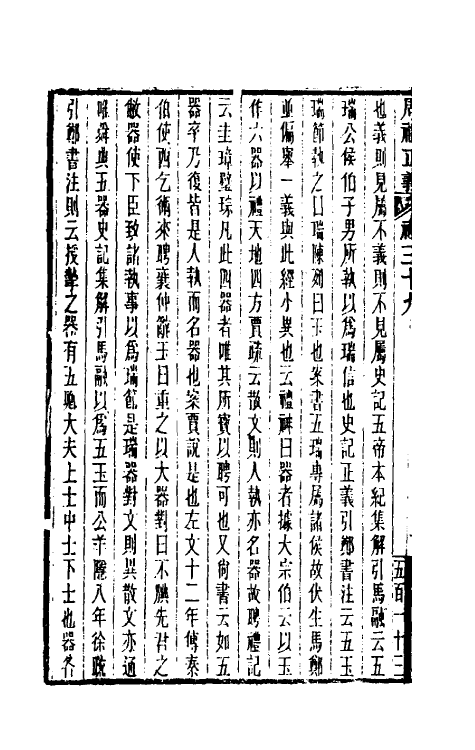 周禮正義 卷 禮三十九 五百一十三
也義則見屬不義則不見屬史記五帝本紀集解引馬融云五
瑞公侯伯子男所執以爲瑞信也史記正義引鄭書注云五玉
瑞節執之曰瑞陳列曰玉也案書五瑞專屬諸侯故伏生馬鄭
並偏舉一義與此經小異也云禮神曰器者據大宗伯云以玉
作六器以禮天地四方賈疏云散文則人執亦名器故聘禮記
云圭璋璧琮凡此四器者唯其所寶以聘可也又尙書云如五
器卒乃復皆是人執而名器也案賈說是也左文十二年傳秦
伯使西乞術來聘襄仲辭玉曰重之以大器對曰不腆先君之
敝器使下臣致諸執事以爲瑞節是瑞器對文則異散文亦通
唯舜典五器史記集解引馬融以爲五玉而公羊隱八年徐疏
引鄭書注則云授摯之器有五卿大夫上士中士下士也器各